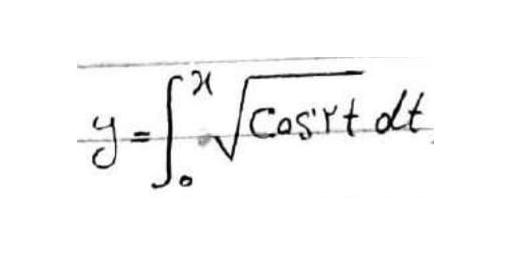 y = ∫₀ˣ √(cos ۲t) dt